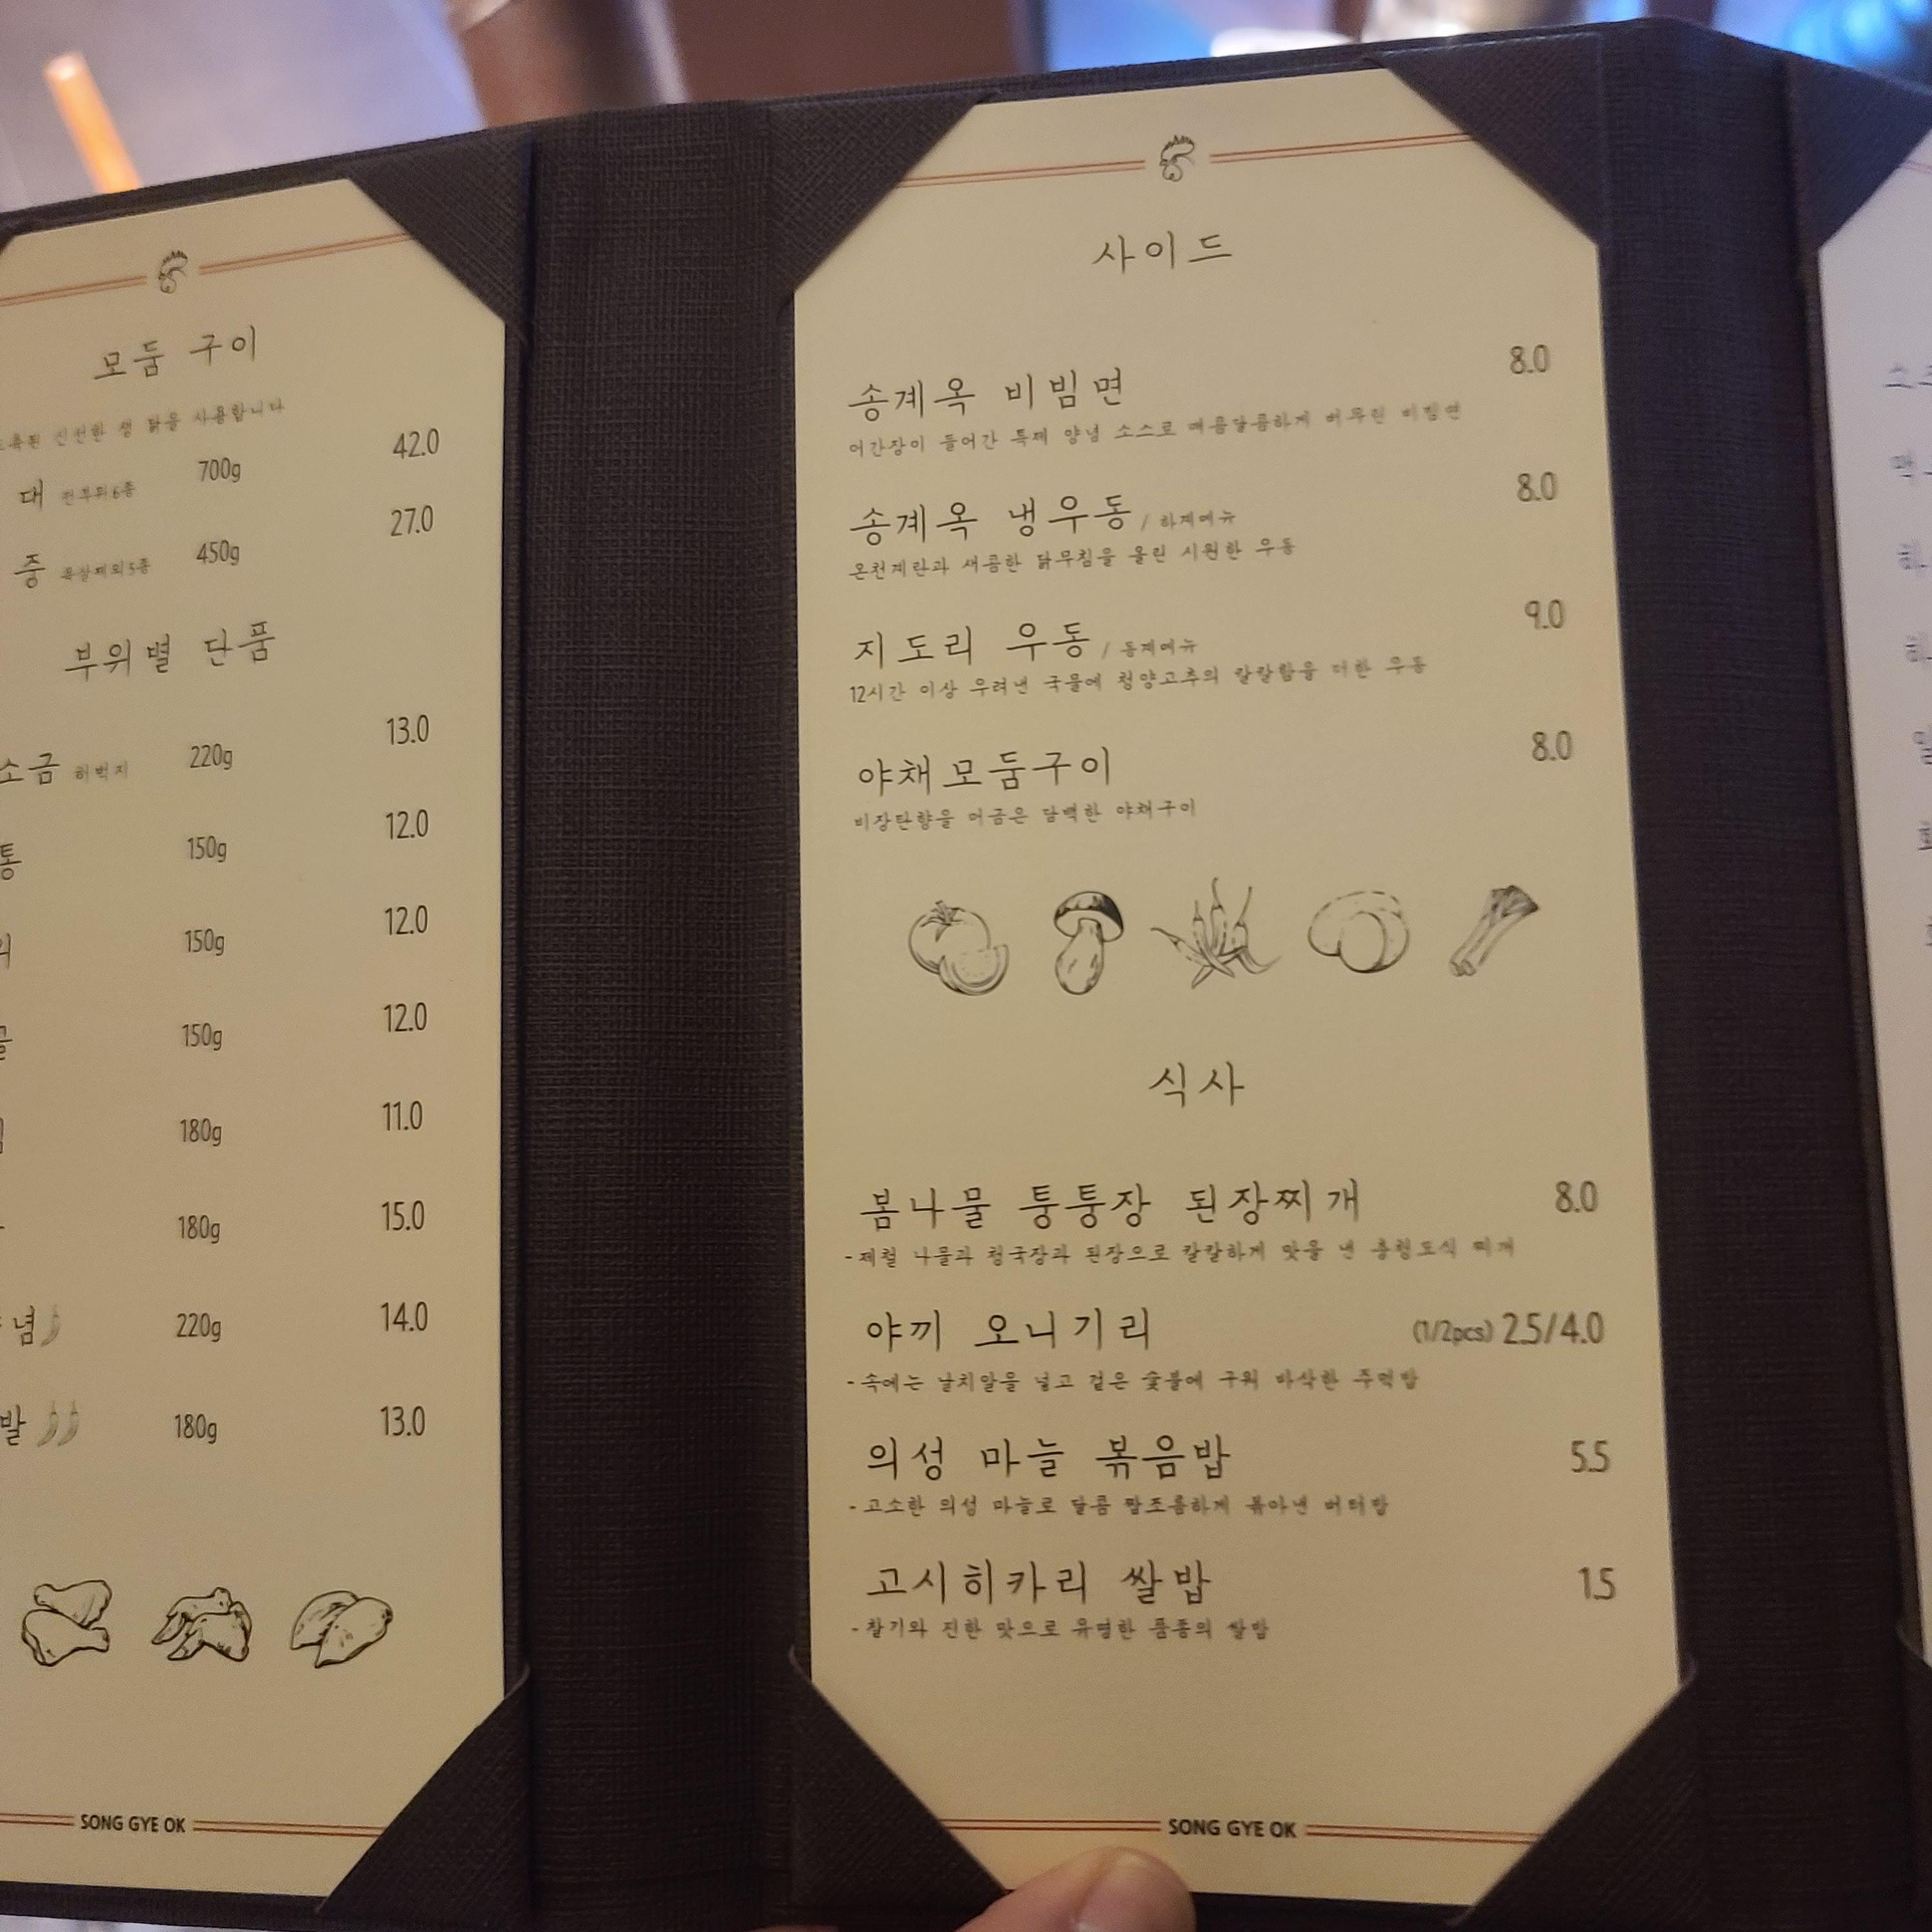 모둠 구이
신선한 생 닭을 사용합니다
대 전부위6종 700g 42.0
중 목살제외5종 450g 27.0
부위별 단품
소금 허벅지 220g 13.0
통 150g 12.0
150g 12.0
150g 12.0
180g 11.0
180g 15.0
념 220g 14.0
발 180g 13.0
SONG GYE OK
사이드
송계옥 비빔면 8.0
어간장이 들어간 특제 양념 소스로 매콤달콤하게 버무린 비빔면
송계옥 냉우동 / 하계메뉴 8.0
온천계란과 새콤한 닭무침을 올린 시원한 우동
지도리 우동 / 동계메뉴 9.0
12시간 이상 우려낸 국물에 청양고추의 칼칼함을 더한 우동
야채모둠구이 8.0
비장탄향을 머금은 담백한 야채구이
식사
봄나물 퉁퉁장 된장찌개 8.0
-제철 나물과 청국장과 된장으로 칼칼하게 맛을 낸 충청도식 찌개
야끼 오니기리 (1/2pcs) 2.5/4.0
-속에는 날치알을 넣고 겉은 숯불에 구워 바삭한 주먹밥
의성 마늘 볶음밥 5.5
-고소한 의성 마늘로 달콤 짭조름하게 볶아낸 버터밥
고시히카리 쌀밥 1.5
-찰기와 진한 맛으로 유명한 품종의 쌀밥
SONG GYE OK